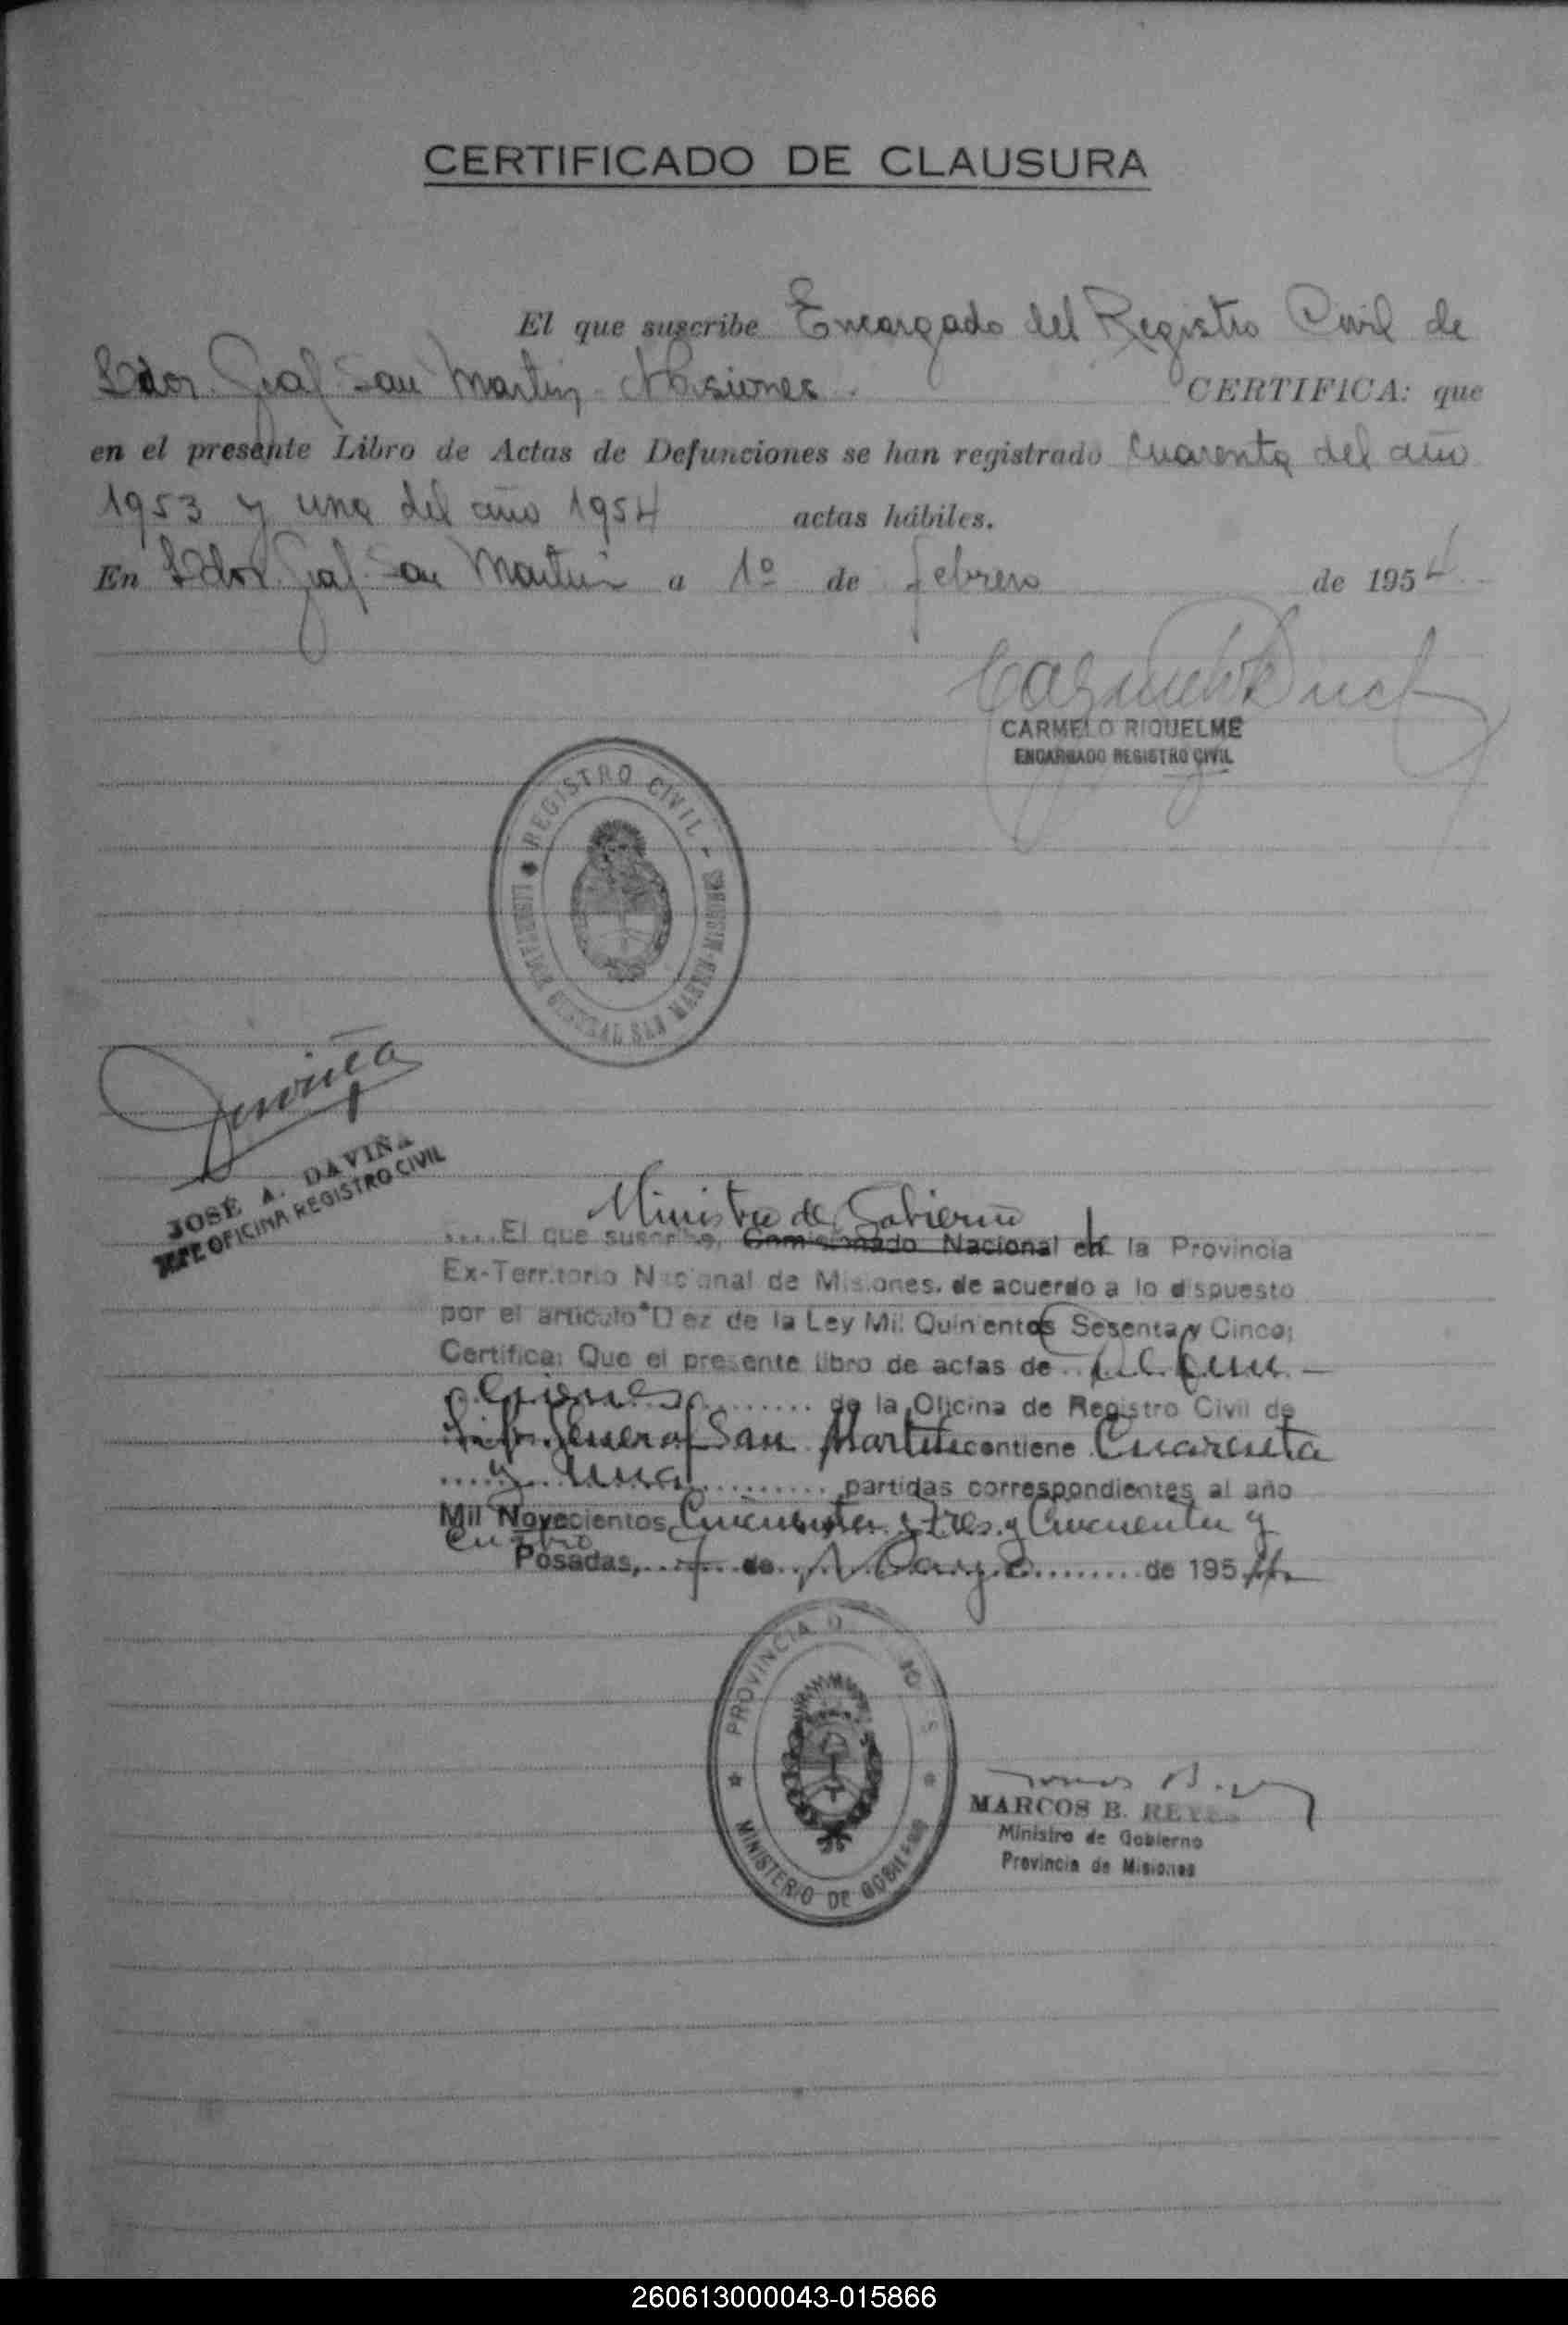 CERTIFICADO DE CLAUSURA
El que suscribe Encargado del Registro Civil de
Ldor. Gral San Martin - Misiones. CERTIFICA: que
en el presente Libro de Actas de Defunciones se han registrado cuarenta del año
1953 y una del año 1954 actas hábiles.
En Ldor. Gral. San Martin a 1º de febrero de 1954
CARMELO RIQUELME
ENCARGADO REGISTRO CIVIL
REGISTRO CIVIL - LIBERTADOR GENERAL SAN MARTIN-MISIONES
JOSÉ A. DAVIÑA
JEFE OFICINA REGISTRO CIVIL
Ministro de Gobierno
....El que suscribe, Comisionado Nacional en la Provincia
Ex-Territorio Nacional de Misiones, de acuerdo a lo dispuesto
por el artículo Diez de la Ley Mil Quinientos Sesenta y Cinco;
Certifica: Que el presente libro de actas de Defun-
ciones de la Oficina de Registro Civil de
General San Martin contiene Cuarenta
y una partidas correspondientes al año
Mil Novecientos Cincuenta y tres y Cincuenta y
cuatro
Posadas, 7 de Mayo de 1954
PROVINCIA D IO S
MINISTERIO DE GOBIERNO
MARCOS B. REYES
Ministro de Gobierno
Provincia de Misiones
260613000043-015866